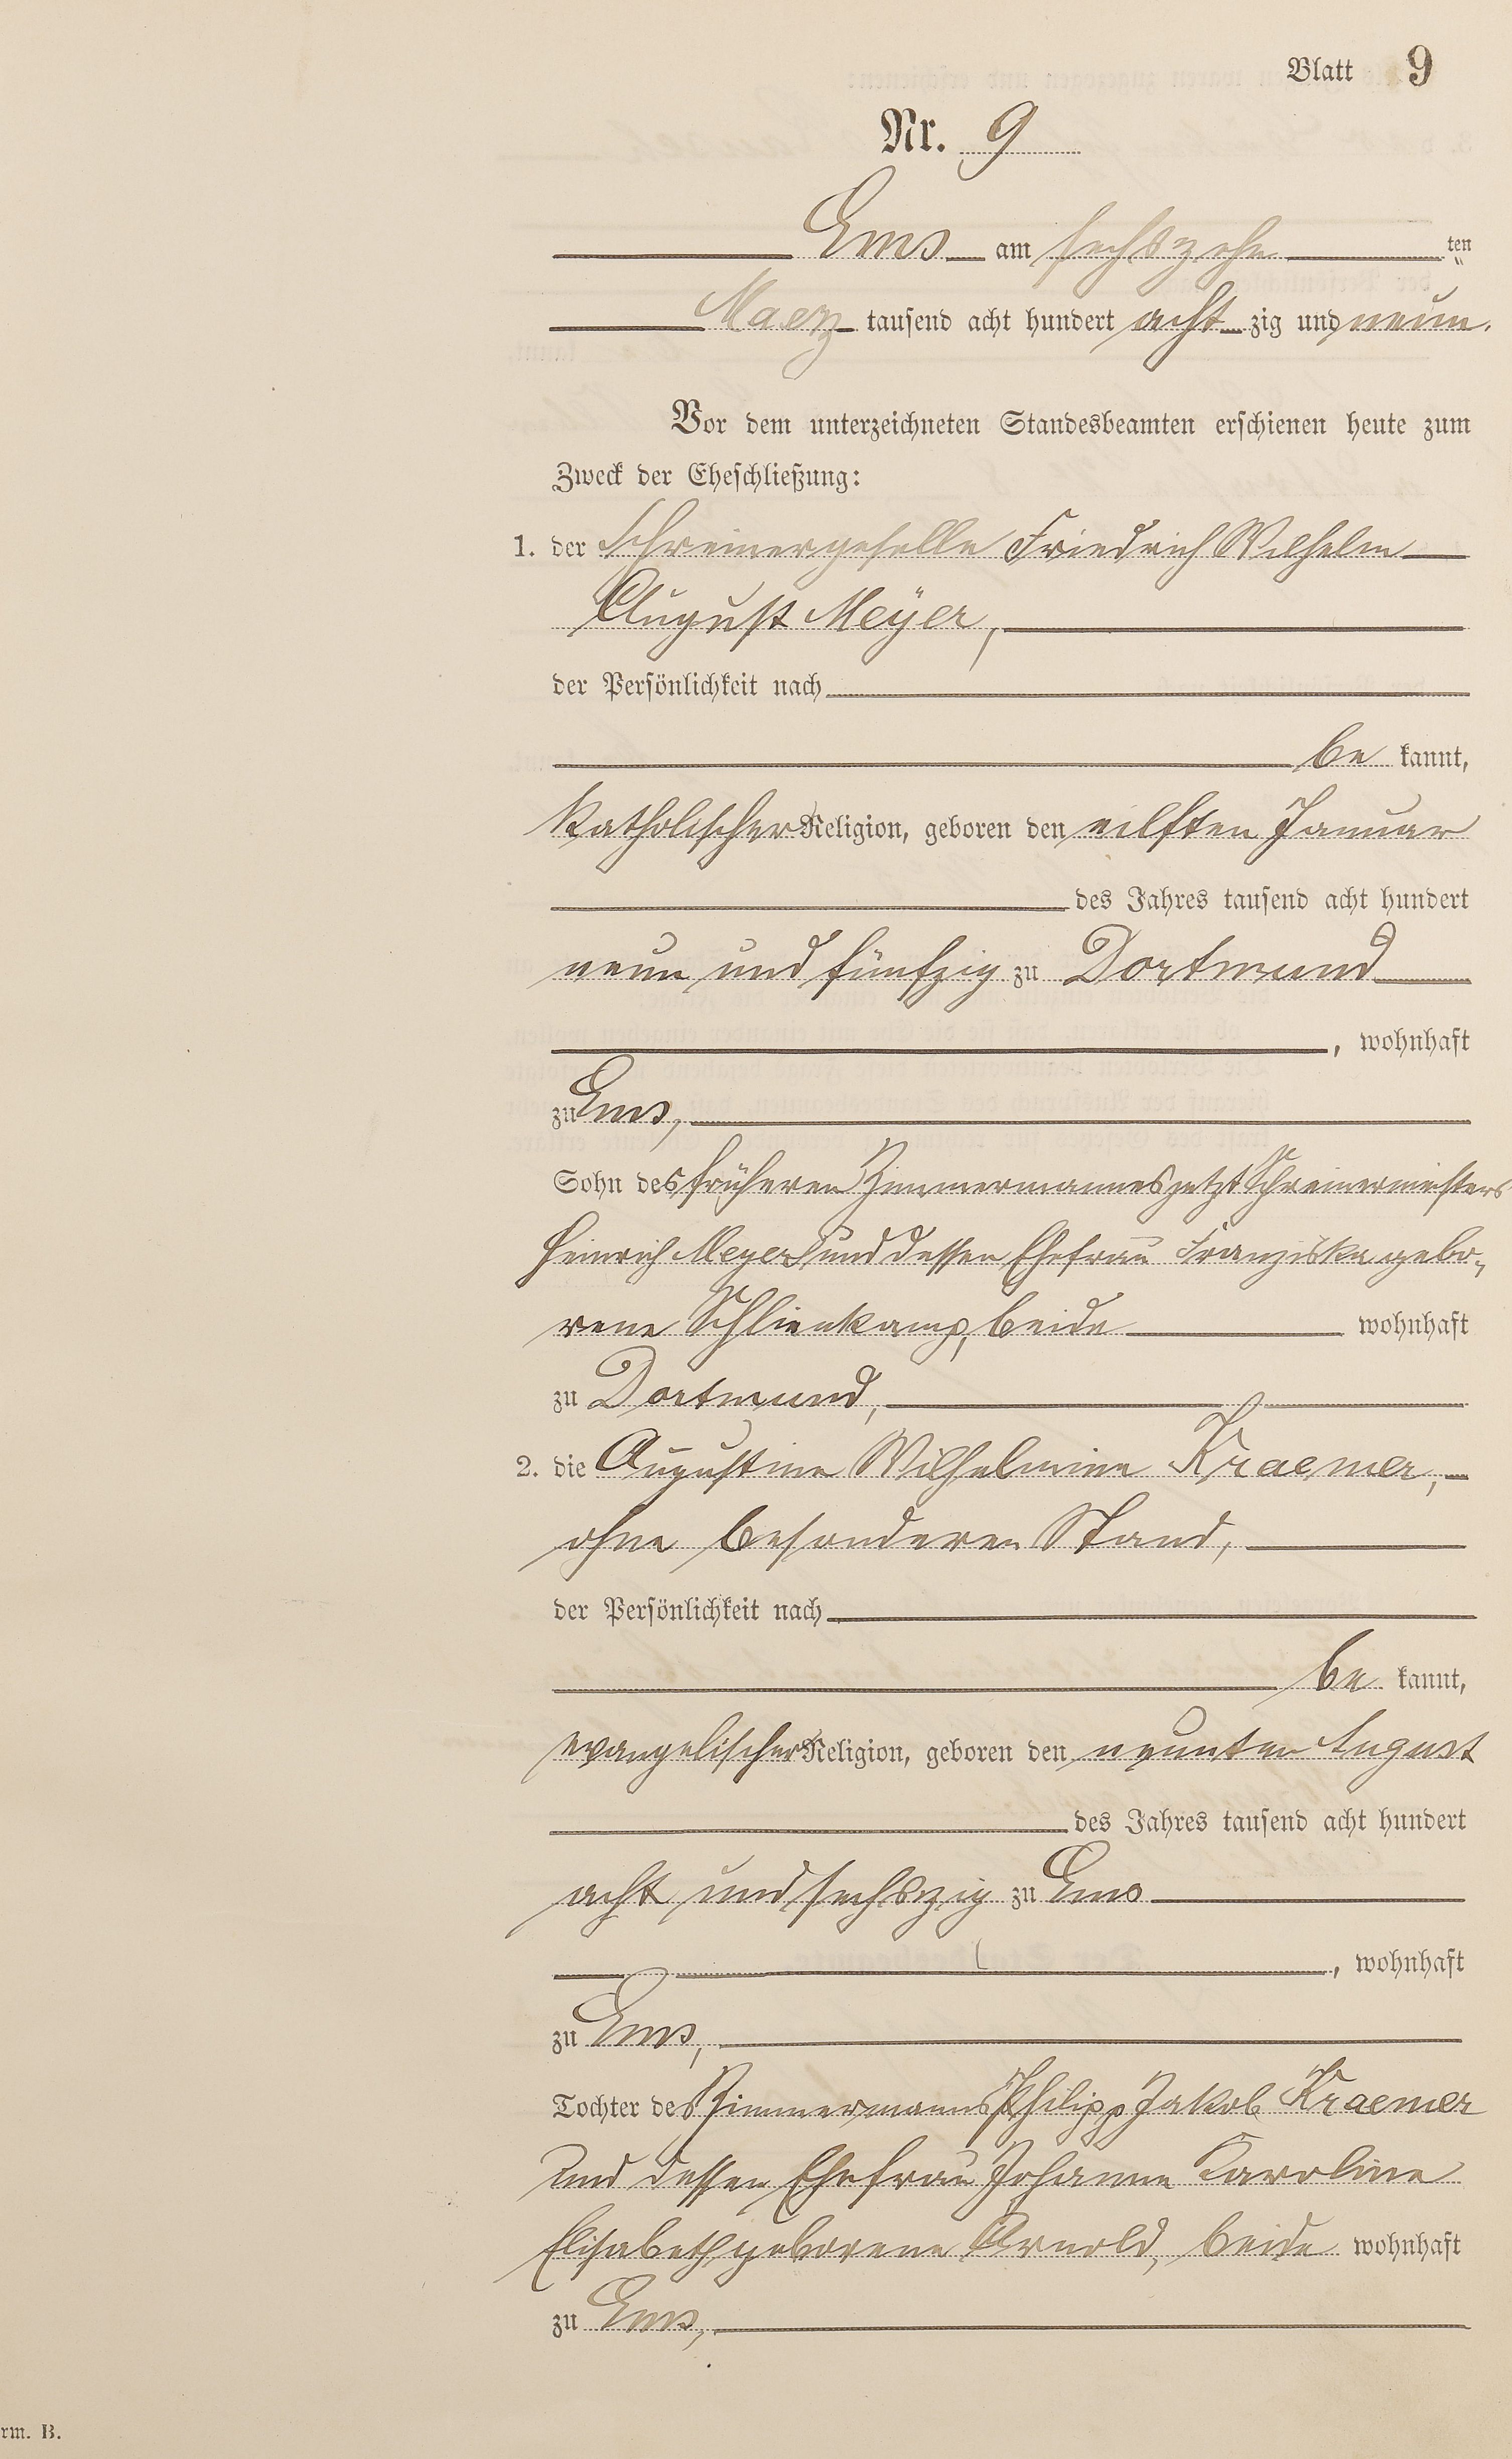 Blatt 9
Nr. 9
Ems am sechszehn ten
Maerz tausend acht hundert acht zig und neun.
Vor dem unterzeichneten Standesbeamten erschienen heute zum
Zweck der Eheschließung:
1. der Schreinergeselle Friedrich Wilhelm
August Meÿer,
der Persönlichkeit nach
be kannt,
katholischer Religion, geboren den eilften Januar
des Jahres tausend acht hundert
neun und fünfzig zu Dortmund
, wohnhaft
zu Ems,
Sohn des früheren Zimmermannes jetzt Schreinermeisters
Heinrich Meyer und dessen Ehefrau Franziska gebo-
rene Schlienkamp, beide wohnhaft
zu Dortmund,
2. die Augustine Wilhelmine Kraemer,
ohne besonderen Stand,
der Persönlichkeit nach
be kannt,
evangelischer Religion, geboren den neunten August
des Jahres tausend acht hundert
acht und sechszig zu Ems
, wohnhaft
zu Ems,
Tochter des Zimmermanns Philipp Jakob Kraemer
und dessen Ehefrau Johanne Karoline
Elisabeth geborene Arnold, beide wohnhaft
zu Ems,
rm. B.